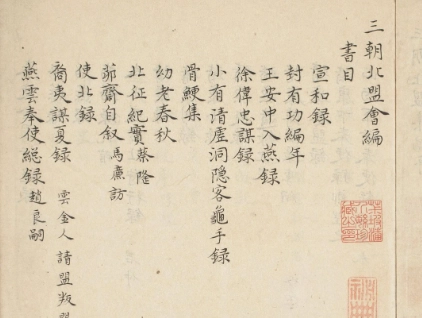 三朝北盟會編
書目
宣和録
封有功編年
王安中入燕録
徐偉忠謀録
小有清虛洞隐客龜手録
骨鯁集
幼老春秋
北征紀實蔡隆
茆齋自叙馬廉訪
使北録
裔夷謀夏録 雲金人請盟叛盟
燕雲奉使総録趙良嗣